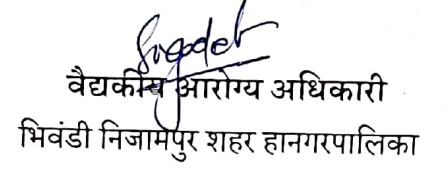 वैद्यकीय आरोग्य अधिकारी
भिवंडी निजामपुर शहर हानगरपालिका